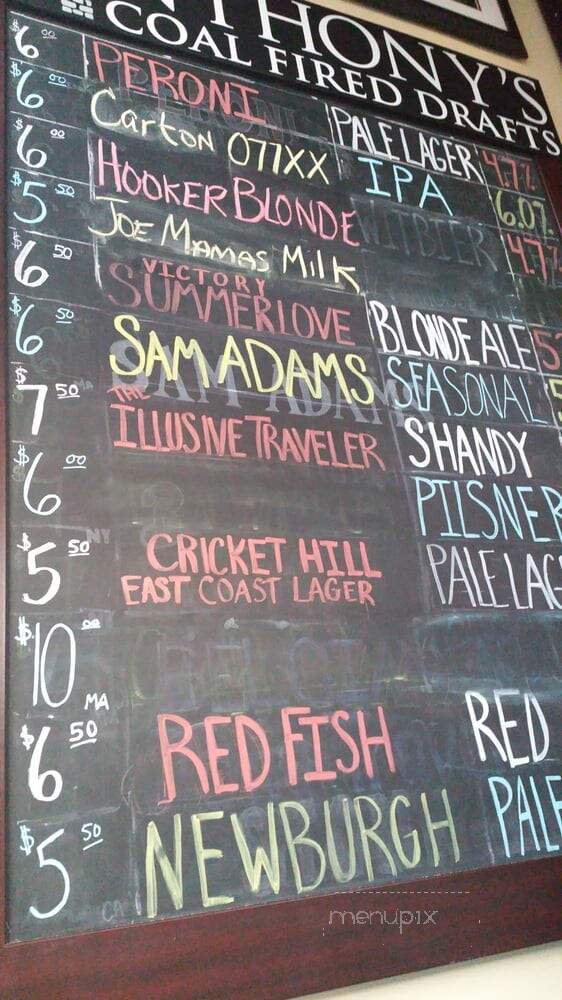 ANTHONY'S
COAL FIRED DRAFTS
$6 00 PERONI PALE LAGER 4.7%
$6 00 Carton 077XX IPA 6.0%
$6 00 HOOKER BLONDE 4.7%
$5 50 JOE MAMAS Milk
$6 50 VICTORY
SUMMERLOVE BLONDE ALE
$6 50 SAM ADAMS SEASONAL
$7 50 THE
ILLUSIVE TRAVELER SHANDY
$6 00 PILSNER
$5 50 NY CRICKET HILL PALE LAG
EAST COAST LAGER
$10 00
MA
$6 50 RED FISH RED
$5 50 NEWBURGH PALE
CA
menupix